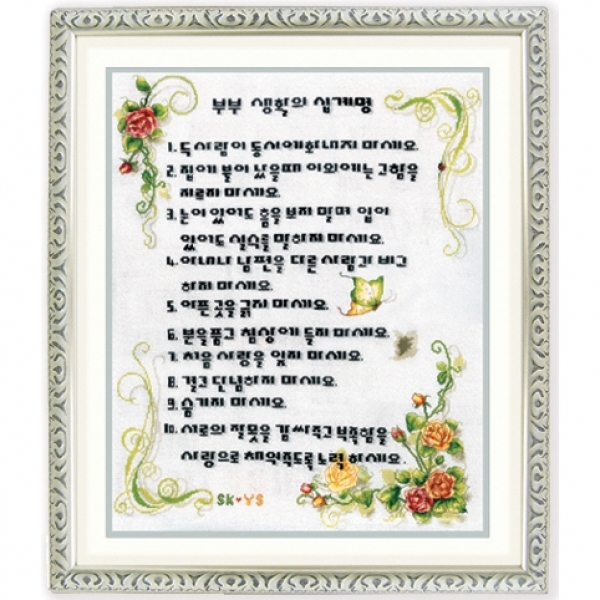 부부 생활의 십계명
1. 두사람이 동시에화내지 마세요.
2. 집에 불이 났을때 이외에는 고함을
지르지 마세요.
3. 눈이 있어도 흠을 보지 말며 입이
있어도 실수를 말하지 마세요.
4. 아내나 남편을 다른 사람과 비교
하지 마세요.
5. 아픈 곳을 긁지 마세요.
6. 분을품고 침상에 들지 마세요.
7. 처음 사랑을 잊지 마세요.
8. 결코 단념하지 마세요.
9. 숨기지 마세요.
10. 서로의 잘못을 감싸주고 부족함을
사랑으로 채워주도록 노력 하세요.
SK♥YS